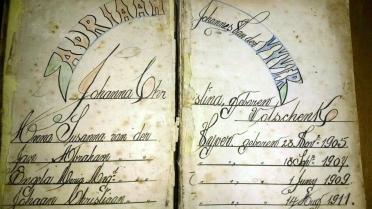 ADRIAAN Johannes van der VYVER
Johanna Christina, geboren Volschenk
Anna Susanna van der Vyver, geboren 23 Nov. 1905.
Jan Abraham " " " 18 1907.
Engela Maria " " " 1 Juny 1909.
Johaan Christiaan " " " 14 Aug 1911.